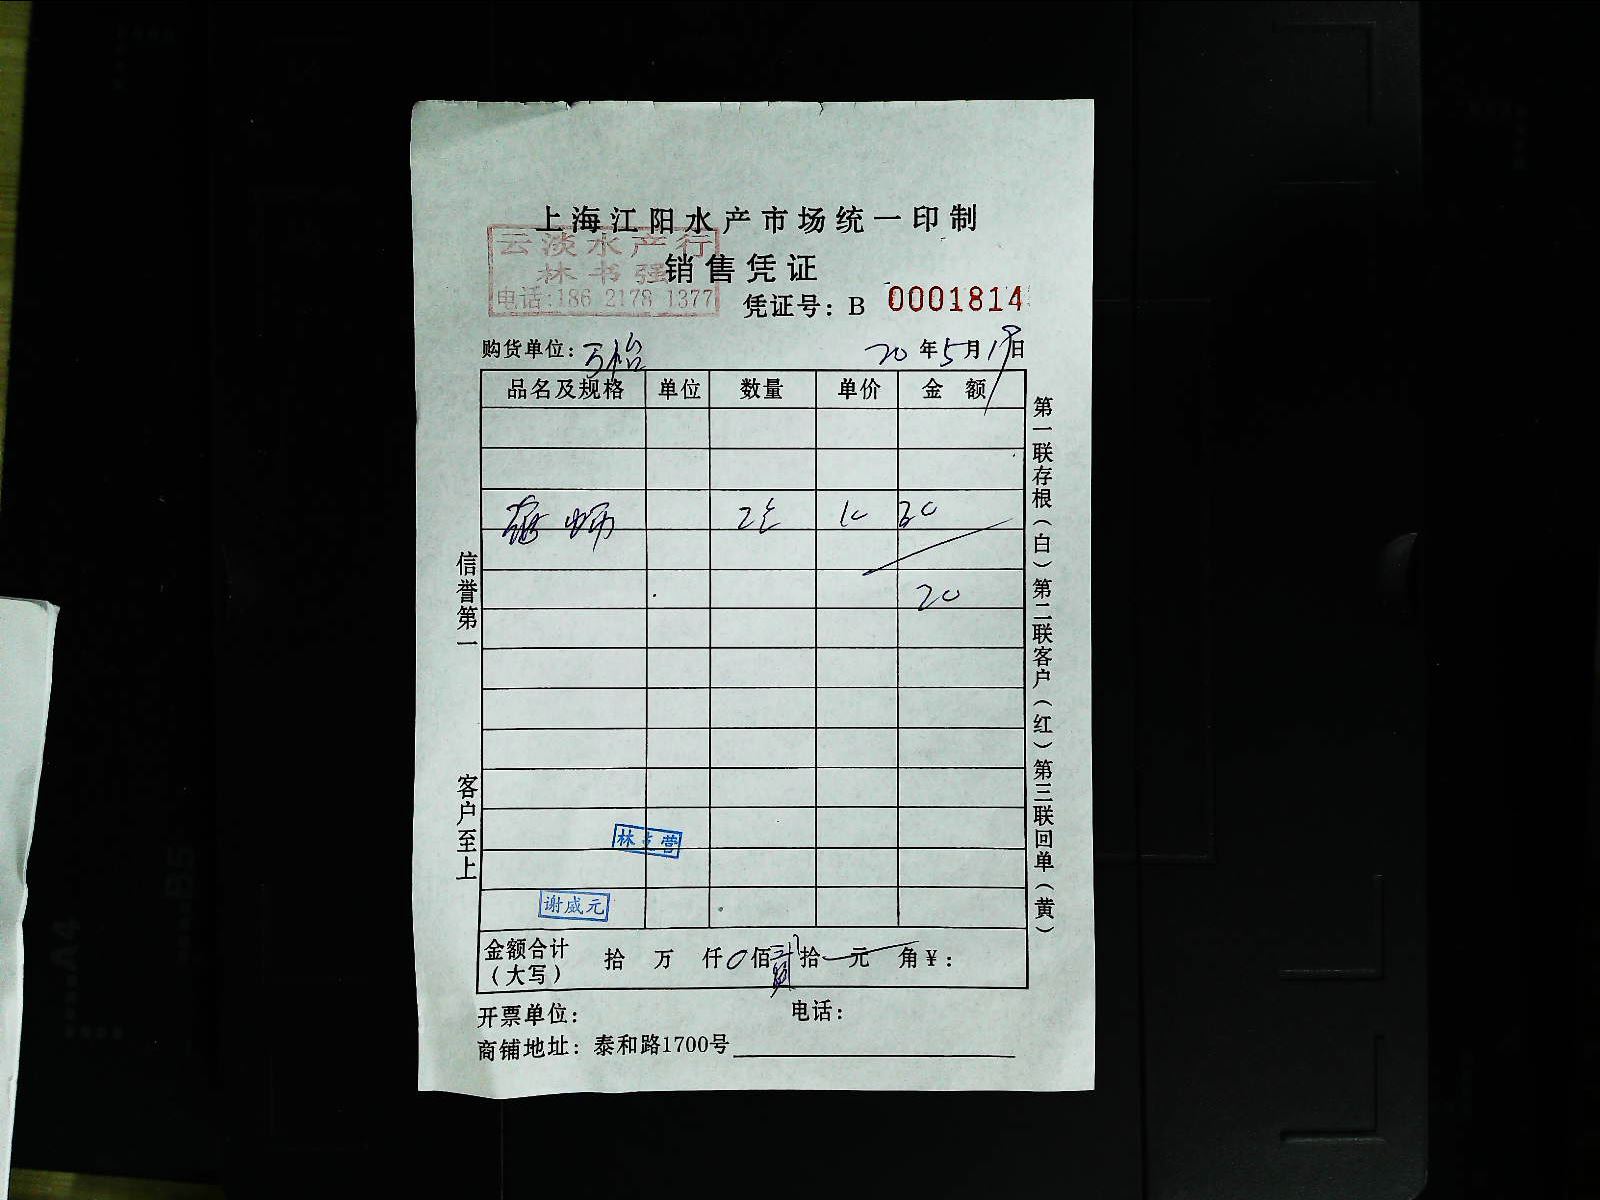 上海江阳水产市场统一印制
云淡水产行
林书强
电话:186 2178 1377
销售凭证
凭证号：B 0001814
购货单位：万怡
20年5月19日
品名及规格 单位 数量 单价 金额
10
20
信誉第一
客户至上
第一联存根（白）第二联客户（红）第三联回单（黄）
谢盛元
金额合计（大写） 拾 万 仟0佰贰拾 元 角¥：
开票单位： 电话：
商铺地址：泰和路1700号